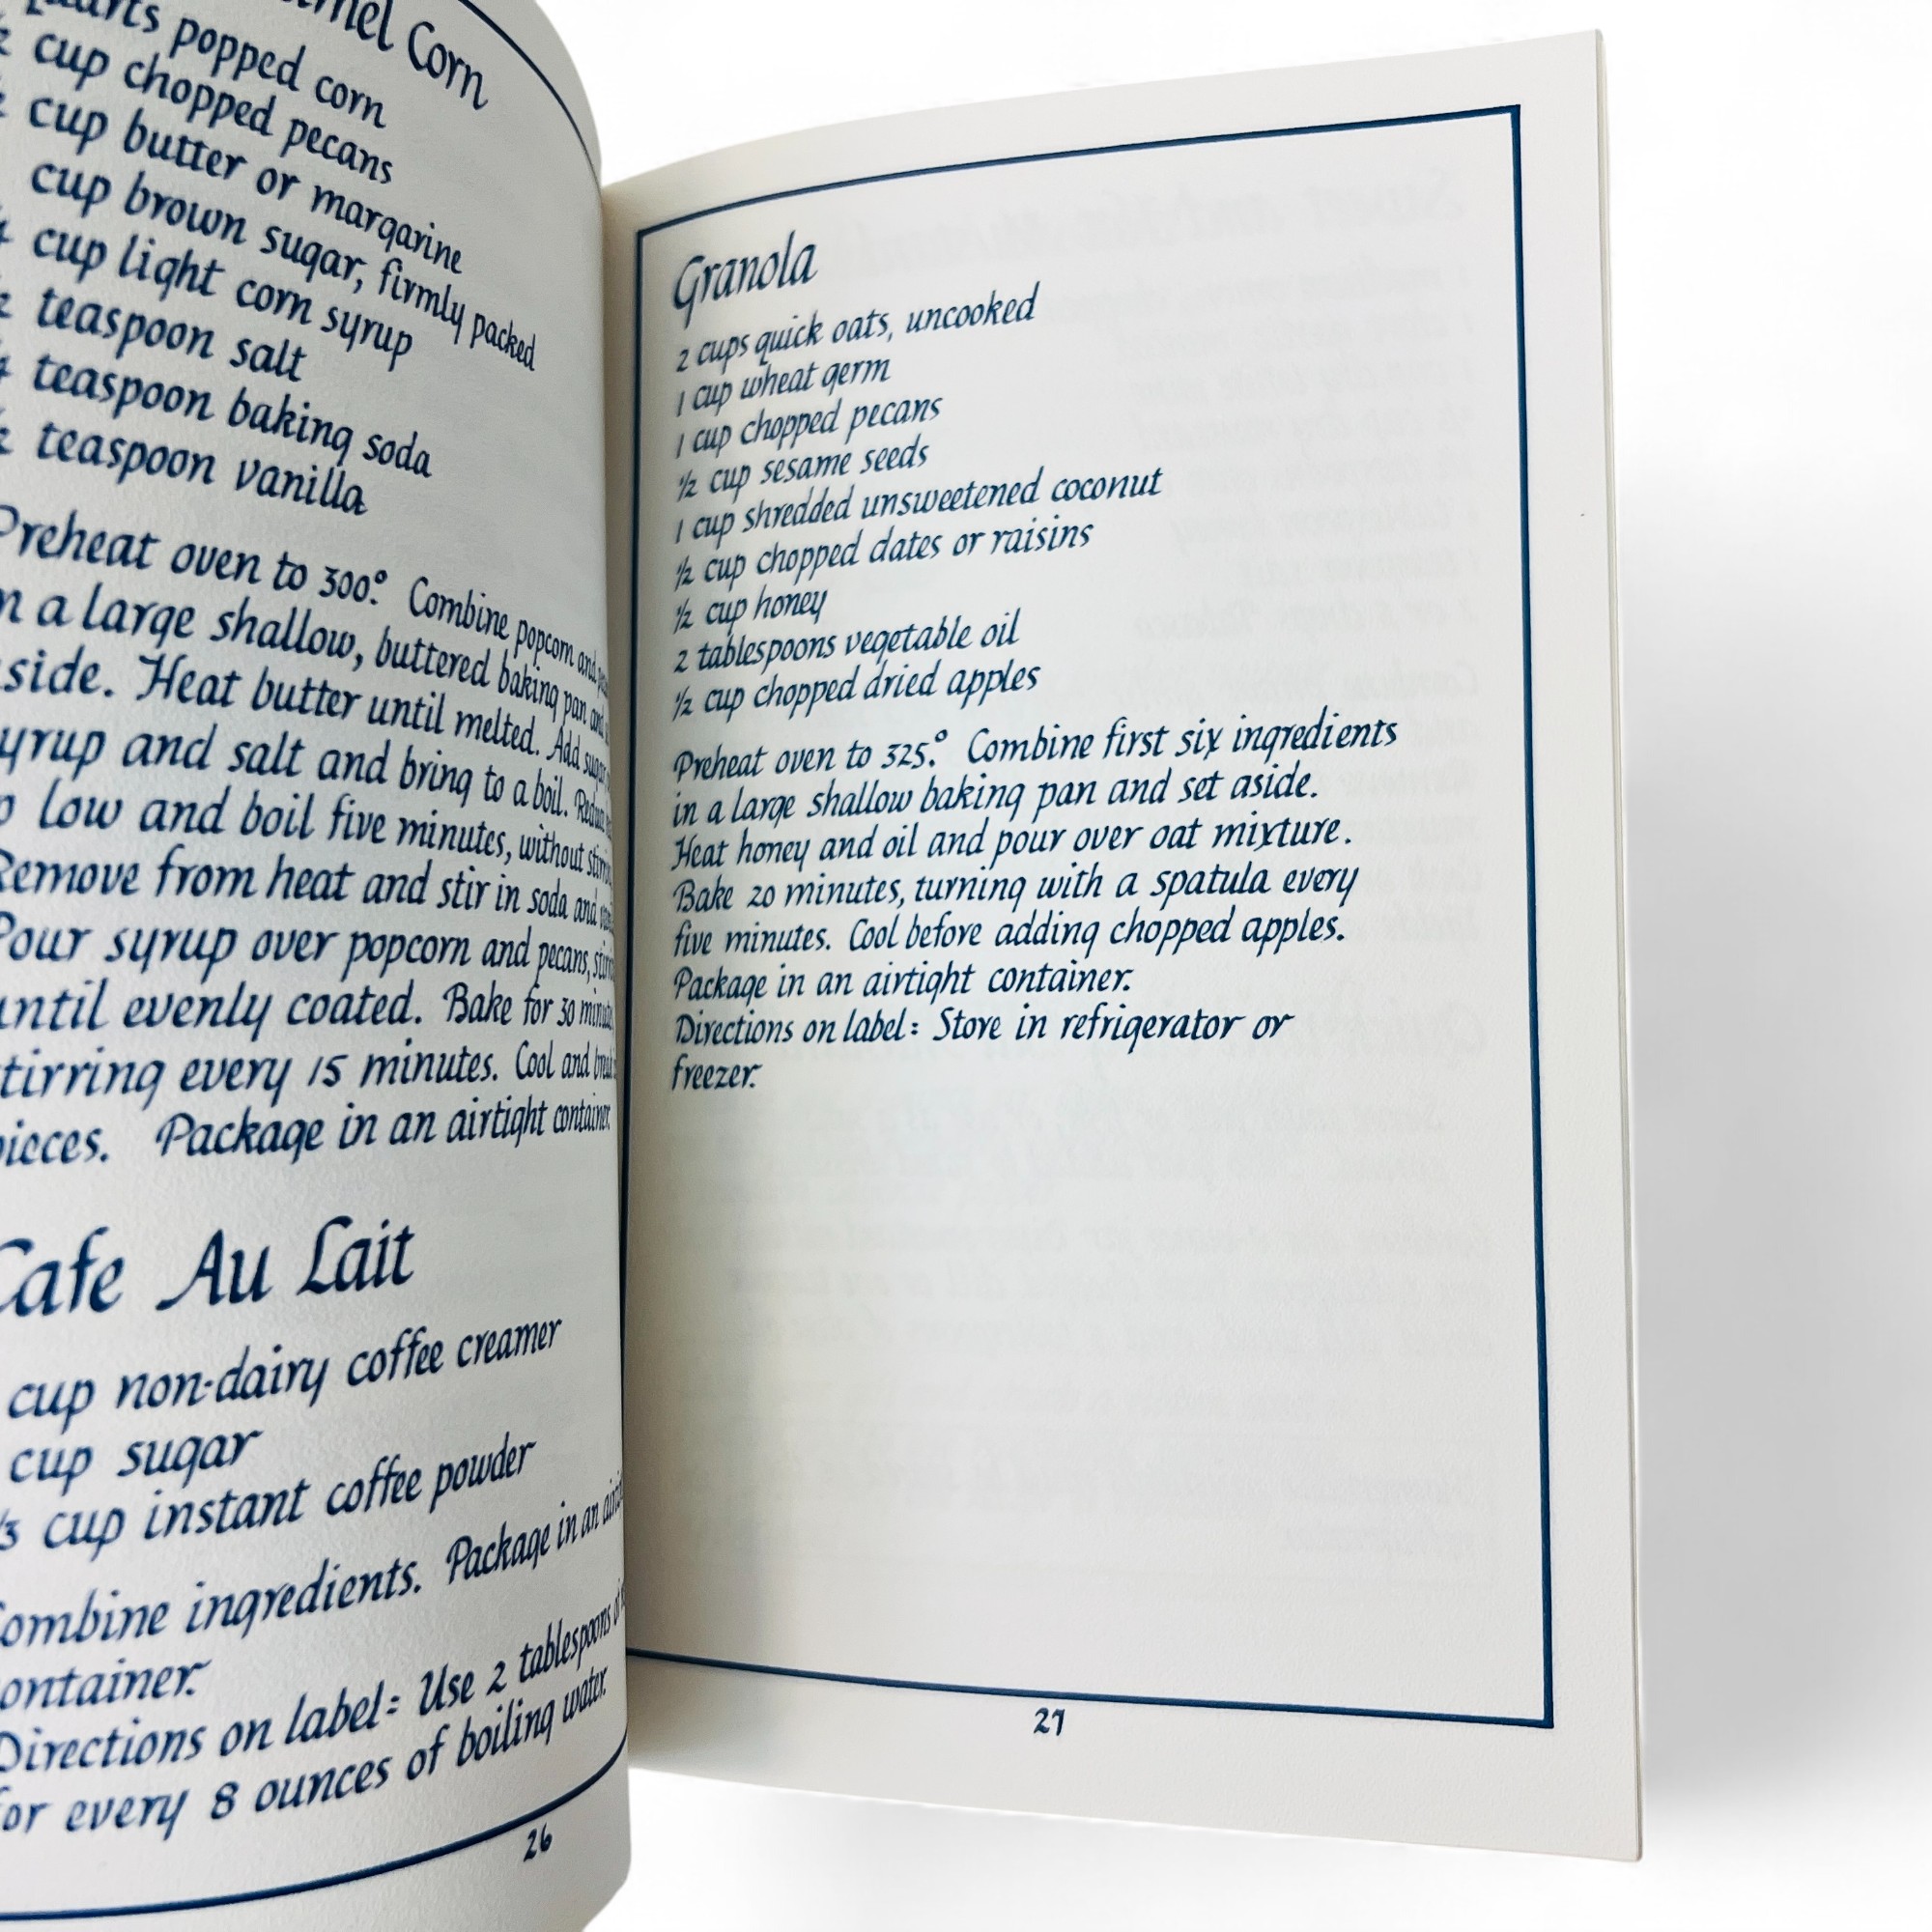 Corn
popped corn
cup chopped pecans
cup butter or margarine
cup brown sugar, firmly packed
cup light corn syrup
teaspoon salt
teaspoon baking soda
teaspoon vanilla
Preheat oven to 300°. Combine popcorn and
a large shallow, buttered baking pan and
Heat butter until melted. Add sugar
and salt and bring to a boil.
low and boil five minutes, without
Remove from heat and stir in soda and
Pour syrup over popcorn and pecans,
until evenly coated. Bake for 30
stirring every 15 minutes. Cool and
pieces. Package in an airtight container.
Cafe Au Lait
cup non-dairy coffee creamer
cup sugar
cup instant coffee powder
Combine ingredients. Package in an
container.
Directions on label: Use 2 tablespoons
for every 8 ounces of boiling water.
26
Granola
2 cups quick oats, uncooked
1 cup wheat germ
1 cup chopped pecans
1/2 cup sesame seeds
1 cup shredded unsweetened coconut
1/2 cup chopped dates or raisins
1/2 cup honey
2 tablespoons vegetable oil
1/2 cup chopped dried apples
Preheat oven to 325°. Combine first six ingredients
in a large shallow baking pan and set aside.
Heat honey and oil and pour over oat mixture.
Bake 20 minutes, turning with a spatula every
five minutes. Cool before adding chopped apples.
Package in an airtight container.
Directions on label: Store in refrigerator or
freezer.
27